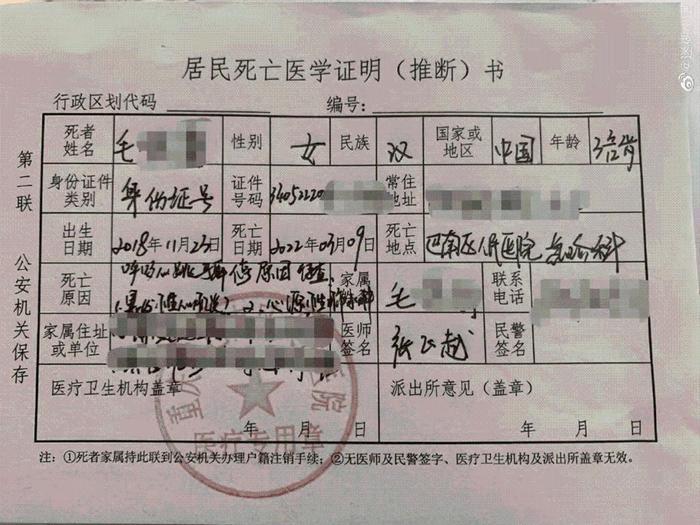 居民死亡医学证明（推断）书
行政区划代码 编号：
第二联 公安机关保存
死者姓名 毛 性别 女 民族 汉 国家或地区 中国 年龄 3岁
身份证件类别 身份证号 证件号码 34052220 常住地址
出生日期 2018年11月23日 死亡日期 2022年03月09日 死亡地点 巴南区人民医院 急诊科
死亡原因 呼吸心跳骤停原因待查 家属签名 毛 联系电话
家属住址或单位 医师签名 张 民警签名
医疗卫生机构盖章 派出所意见（盖章）
年 月 日 年 月 日
重庆 医院
医疗专用章
注：①死者家属持此联到公安机关办理户籍注销手续；②无医师及民警签字、医疗卫生机构及派出所盖章无效。